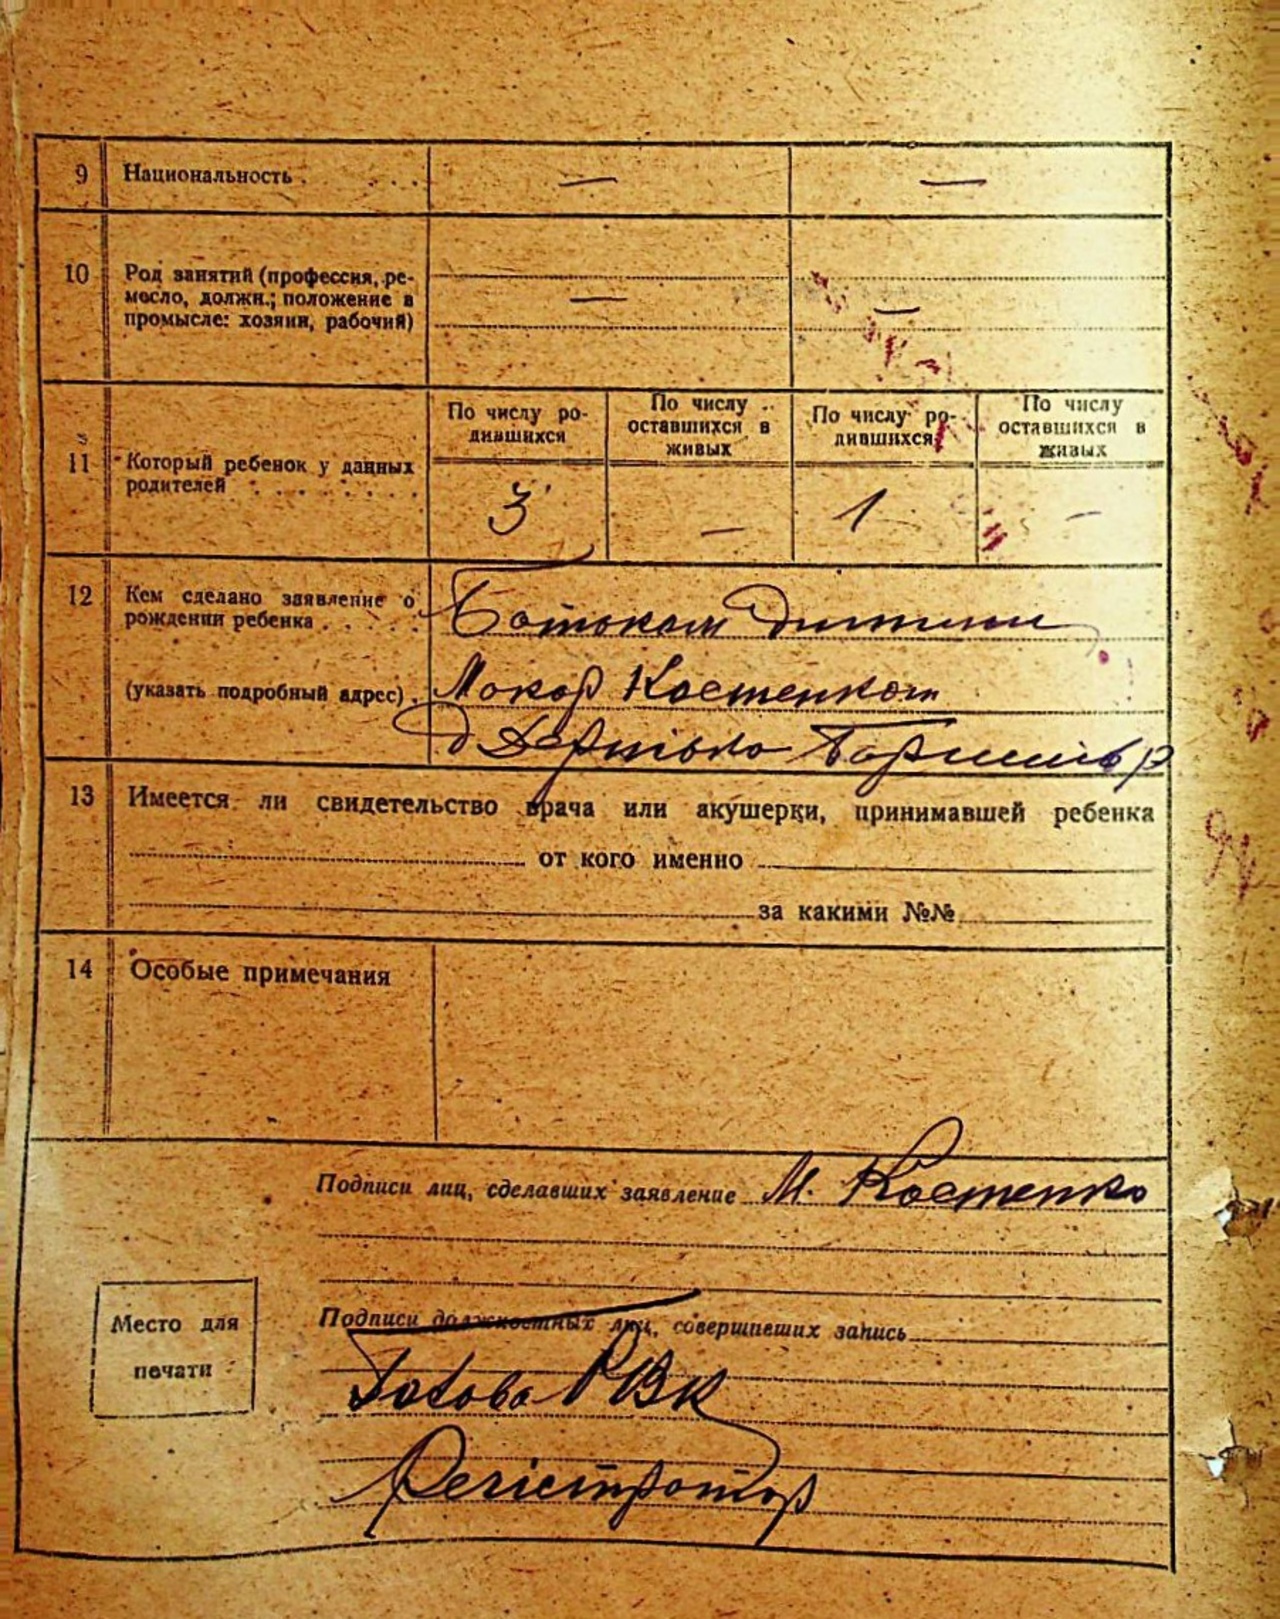 9 Национальность . . . . . — —
10 Род занятий (профессия, ре-
месло, должн.; положение в
промысле: хозяин, рабочий) — —
По числу ро-
дившихся
По числу
оставшихся в
живых
По числу ро-
дившихся
По числу
оставшихся в
живых
11 Который ребенок у данных
родителей . . . . . . . .
3 — 1 -
12 Кем сделано заявление о
рождении ребенка . . . . .
Батьком дитини
(указать подробный адрес) . Макар Костенком
13 Имеется ли свидетельство врача или акушерки, принимавшей ребенка
от кого именно
за какими №№
14 Особые примечания
Подписи лиц, сделавших заявление М. Костенко
Место для
печати
Подписи должностных лиц, совершивших запись
Голова РВК
Регістратор